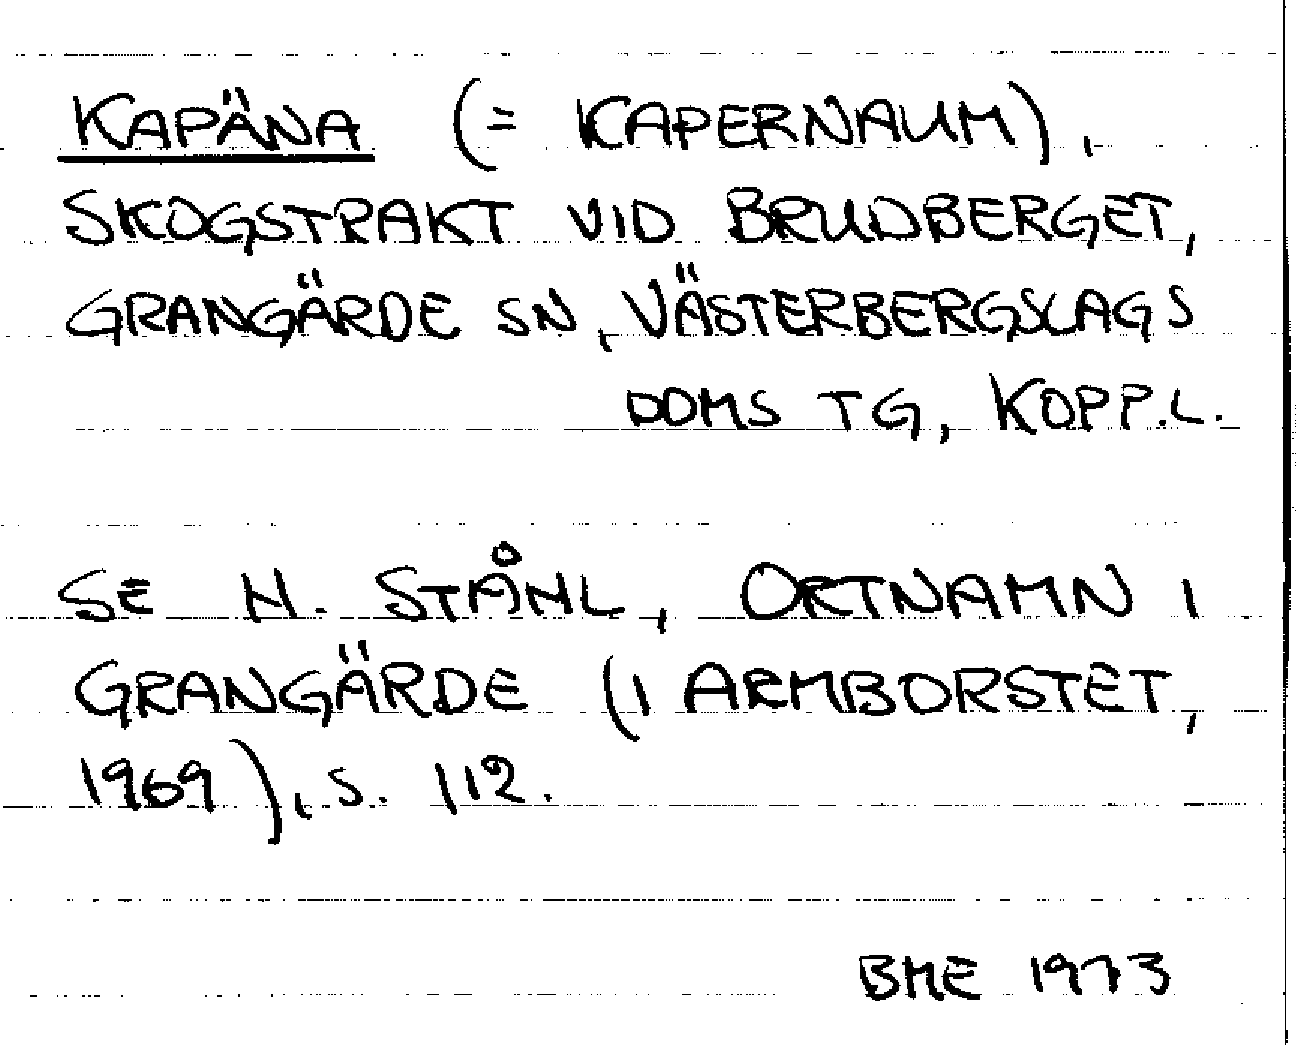 KAPÄNA (= KAPERNAUM),
SKOGSTRAKT VID BRUDBERGET,
GRANGÄRDE SN, VÄSTERBERGSLAGS
DOMS TG, KOPP.L.
SE H. STÅHL, ORTNAMN I
GRANGÄRDE (I ARMBORSTET,
1969), S. 112.
BME 1973